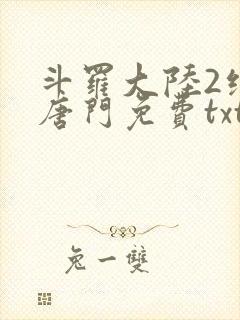 斗羅大陸2
唐門免費txt
兔一雙